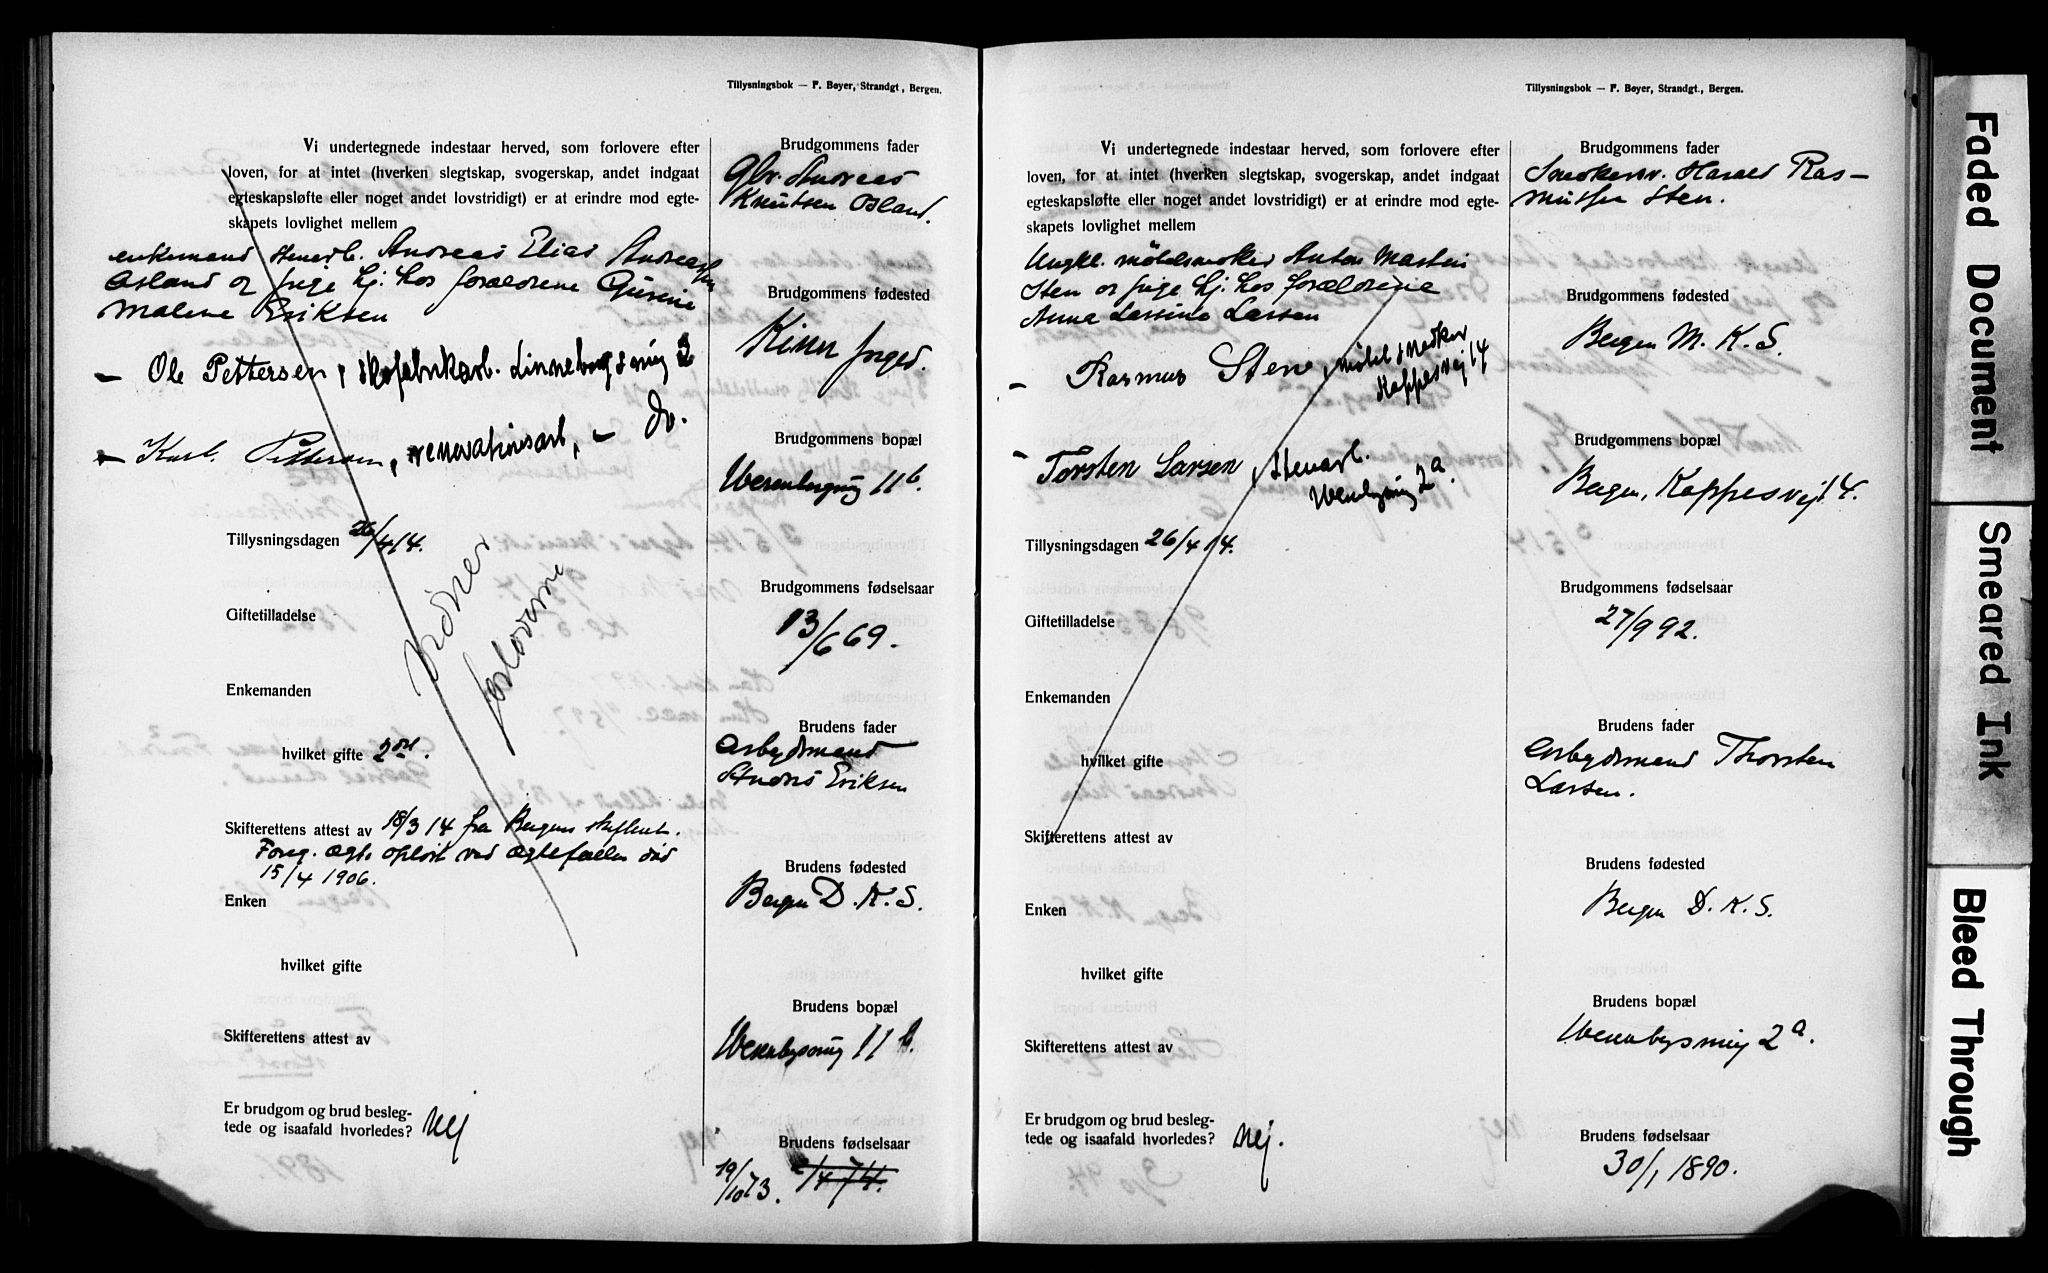 Tillysningsbok — F. Bøyer, Strandgt., Bergen.
Vi undertegnede indestaar herved, som forlovere efter
loven, for at intet (hverken slegtskap, svogerskap, andet indgaat
egteskapsløfte eller noget andet lovstridigt) er at erindre mod egte-
skapets lovlighet mellem
enkemand stenarb. Andreas Elias Andreassen
Øsland og pige hj. hos forældrene Gurine
Malene Eriksen
— Ole Pettersen, skofabrikarb. Linnebergsveig 3
— Karl Pettersen, renovationsarb, — do.
Tillysningsdagen 26/4 14.
vidner
forloverne
Giftetilladelse
Enkemanden
hvilket gifte 2det.
Skifterettens attest av 18/3 14 fra Bergens skifteret.
Foreg. egt. opløst ved egtefællen død
15/4 1906.
Enken
hvilket gifte
Skifterettens attest av
Er brudgom og brud besleg-
tede og isaafald hvorledes? Nej
Brudgommens fader
Gbr. Andreas
Knutsen Øsland.
Brudgommens fødested
Kinn prgd.
Brudgommens bopæl
Wesenbergsmg 11b.
Brudgommens fødselsaar
13/6 69.
Brudens fader
Arbejdsmand
Anders Eriksen
Brudens fødested
Bergen D. K. S.
Brudens bopæl
Wesenbergsmg 11b.
Brudens fødselsaar
19/10 73. 2/4 74.
Tillysningsbok — F. Bøyer, Strandgt., Bergen.
Vi undertegnede indestaar herved, som forlovere efter
loven, for at intet (hverken slegtskap, svogerskap, andet indgaat
egteskapsløfte eller noget andet lovstridigt) er at erindre mod egte-
skapets lovlighet mellem
Ungkl. möbelsnekker Anton Martin
Sten og pige hj. hos forældrene
Anna Lassine Larsen
— Rasmus Sten, möbelsnedker
Kappesvej 14
— Torsten Larsen, stenarb.
Wesenbgsmg 2a.
Tillysningsdagen 26/4 14.
Giftetilladelse
Enkemanden
hvilket gifte
Skifterettens attest av
Enken
hvilket gifte
Skifterettens attest av
Er brudgom og brud besleg-
tede og isaafald hvorledes? Nej.
Brudgommens fader
Snekkersv. Harald Ras-
mussen Sten.
Brudgommens fødested
Bergen M. K. S.
Brudgommens bopæl
Bergen, Kappesvej 14.
Brudgommens fødselsaar
27/9 92.
Brudens fader
Arbejdsmand Thorsten
Larsen.
Brudens fødested
Bergen D. K. S.
Brudens bopæl
Wesenbgsmg 2a.
Brudens fødselsaar
30/1 1890.
Faded Document
Smeared Ink
Bleed Through